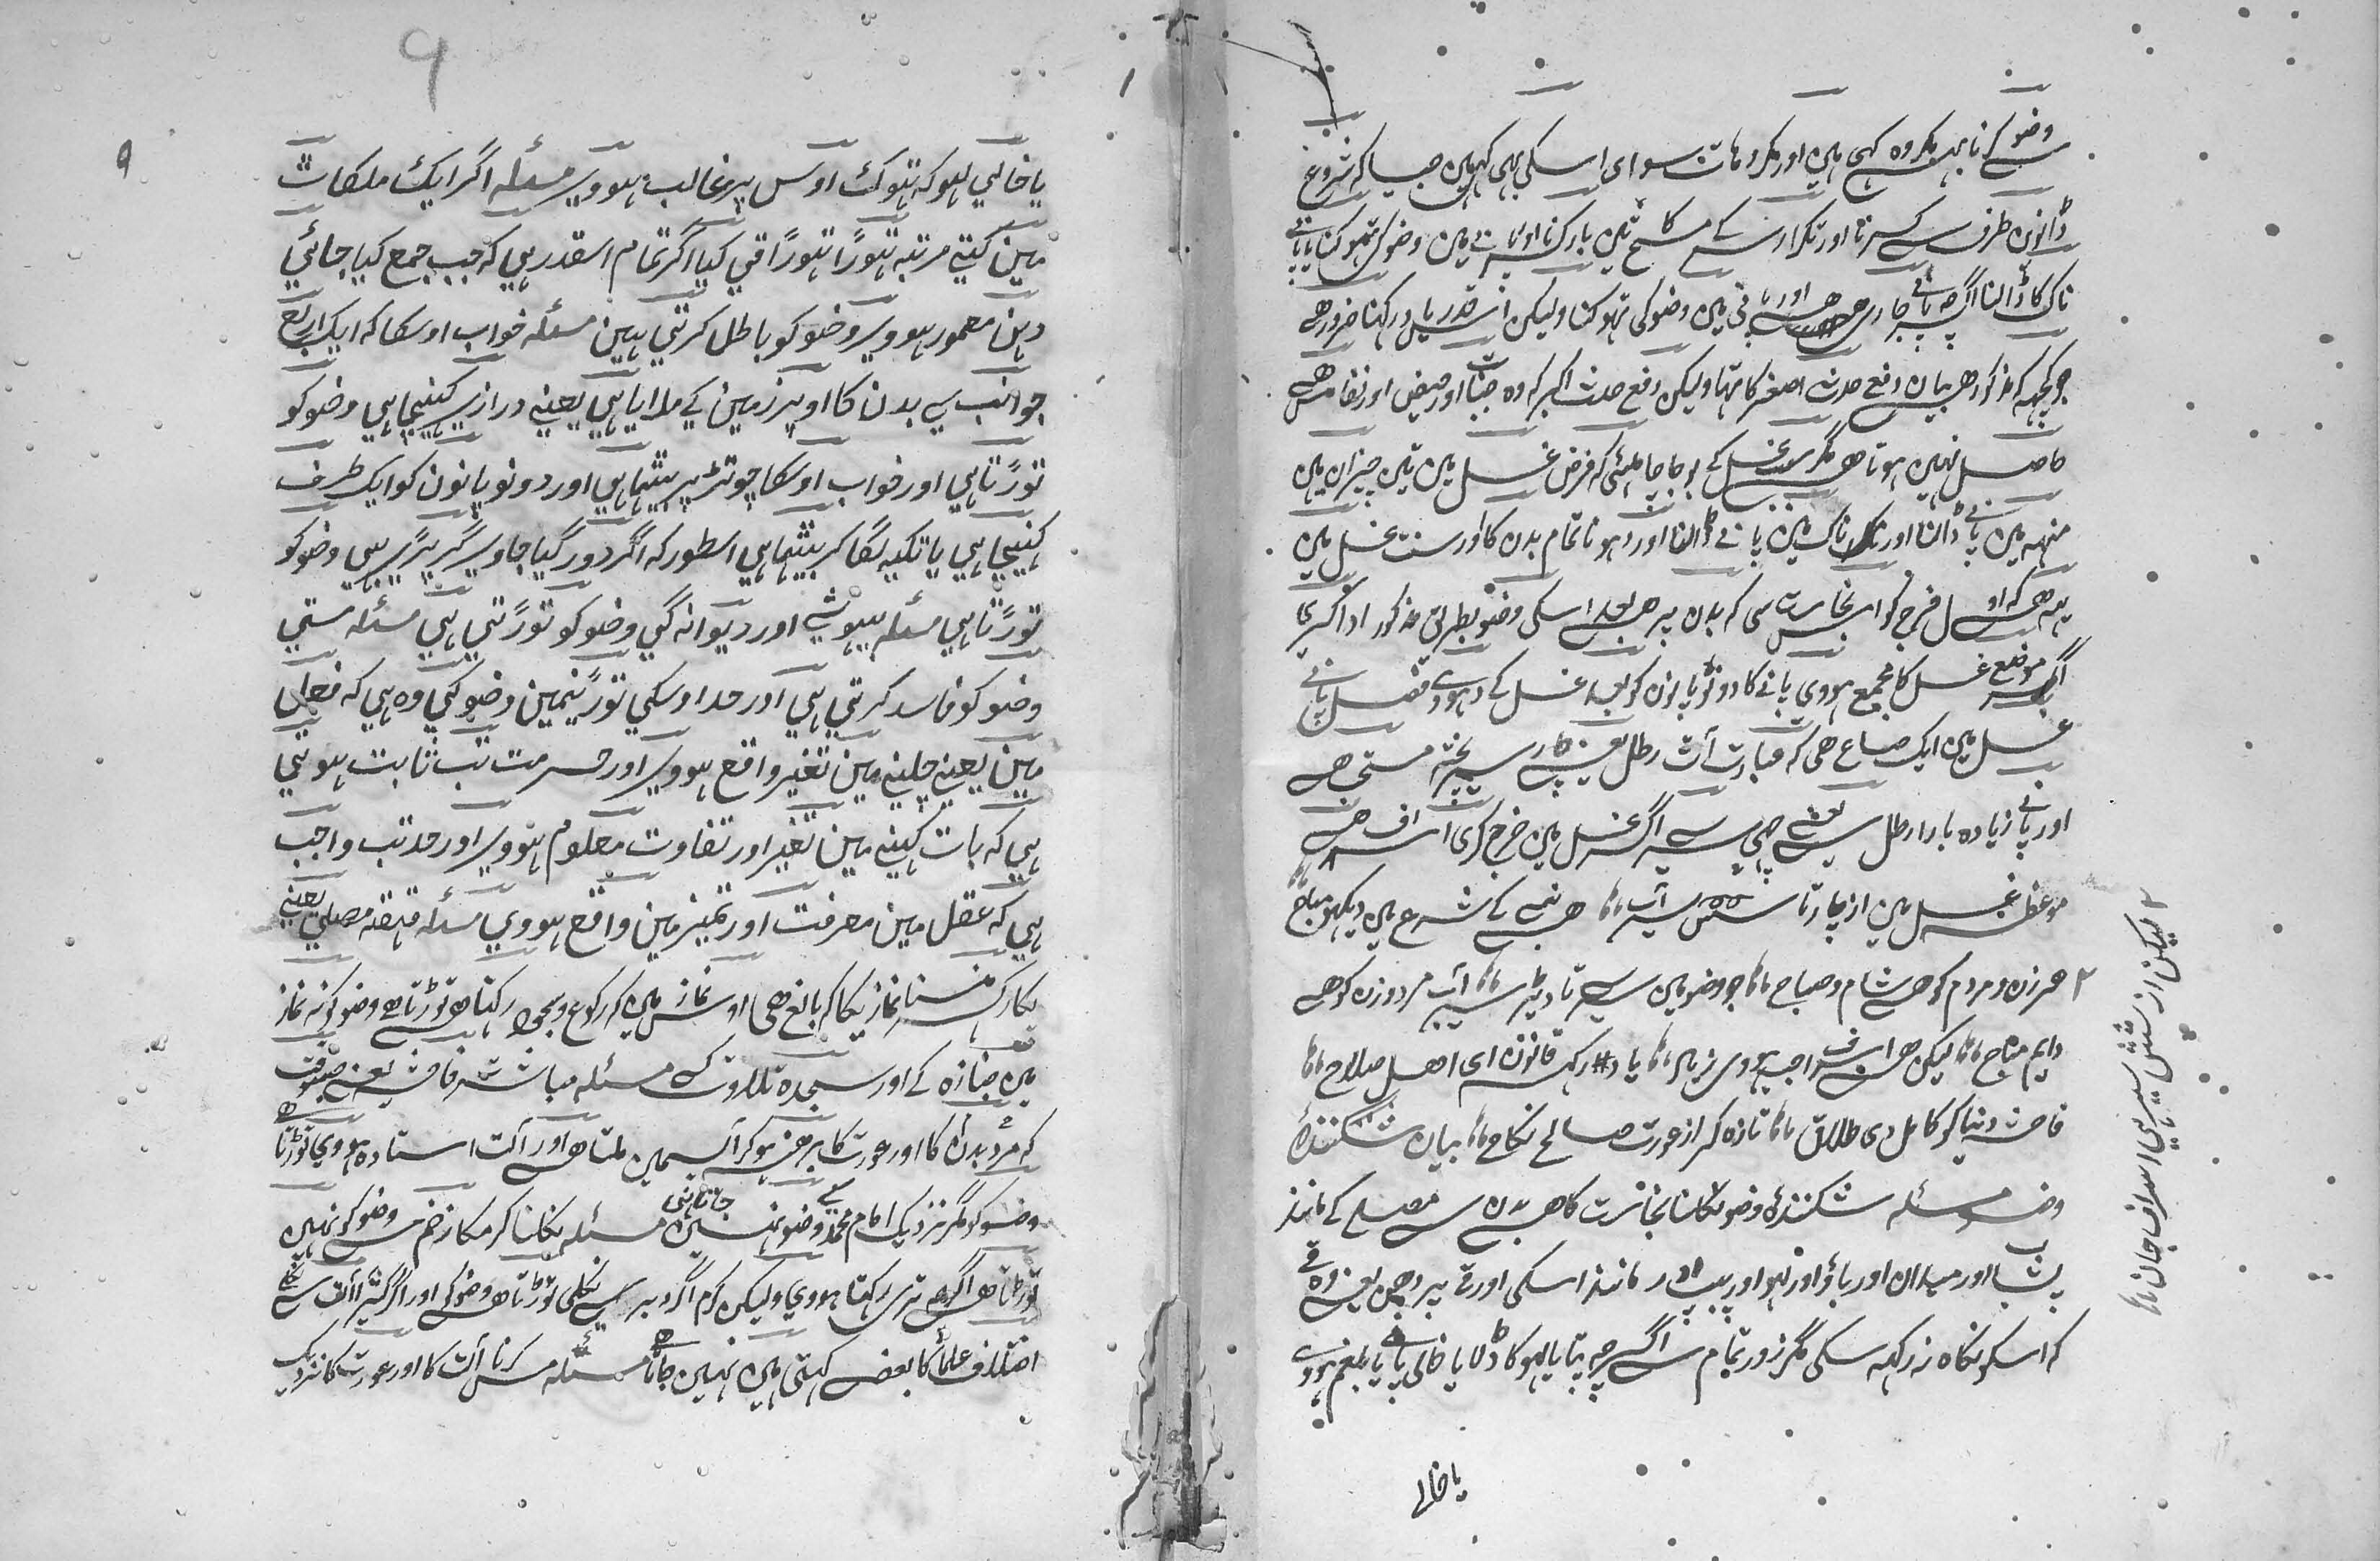 وضو کرنا یہہ مکروہ کہی ہین اور مکروہات سوای اسکی بہی کہین جیسا کہ شروع
ڈانوین طرف سے کرنا اور تکرار سے مسح کی تین بار کرنا اور پانی مین وضو کی تہوکنا یا پانی
ناک کا ڈالنا اگرچہ پانی جاری ہے اور پانی مین وضو کی تہوکنا ولیکن اسقدر یاد رکہنا ضرور ہے
جو کچہہ کہ مذکور ہے بیان رفع حدث اصغر کا تہا ولیکن رفع حدث اکبر کہ وہ جنابت اور حیض اور نفاس ہے
حاصل نہین ہوتا ہے مگر غسل کے جاننا چاہئی کہ فرض غسل مین تین چیزان ہین
منہہ مین پانی ڈالنا اور ناک مین پانی ڈالنا اور دہونا تمام بدن کا اور سنت غسل مین
یہہ ہے کہ اول فرج کو اور نجاست سی کہ بدن پر ہے بعد اسکی وضو بطریق مذکور ادا کری
اگر موضع غسل کا مجمع ہووی پانی کا دونو پانون کو بعد غسل کے دہووی فصل پانی
غسل مین ایک صاع ہی کہ عبارت آٹ رطل یعنی چار سیر پختہ مستحب ہے
اور پانی زیادہ بارا رطل سے یعنی چہی سیر سے اگر غسل مین خرچ کری اسراف ہے
موعظہ غسل مین از چار تا شش سیر آب ہے نبی کے شرع مین دیکہو مباح
۲ ہر زن و مردم کو ہے شام و صباح جو وضو مین سیر تا دیڑ سیر آب مرد و زن کو ہے
دایم مباح لیکن ہے اسراف واجب یاد رکہہ قانون ای اہل صلاح
فاحشہ دنیا کو کامل دی طلاق تازہ کر از عورت صالح نکاح بیان شکنندۂ
وضو مسئلہ شکنندۂ وضو نکلنا نجاست کا ہے بدن سے مصلی کے مانند
پیشاب اور میدان اور باؤ اور لہو اور پیپ اور مانند اسکی اور قی پر دہن یعنی وہ قی
کہ اسکو نگاہ نہ رکہہ سکی مگر زور تمام سے اگرچہ پتا یا لہو کا ڈلا یا خالی پانی یا بلغم ہووی
یا خالی
۲ لیکن از شش سیر ہی اسراف جان
۹
۹
یا خالی لہو کہ تہوک اوس پر غالب ہووی مسئلہ اگر ایک مکان
مین کیتی مرتبہ تہوڑا تہوڑا قی کیا اگر تمام اسقدر ہی کہ جب جمع کیا جائی
دہن معمور ہووی وضو کو باطل کرتی ہین مسئلہ خواب اوسکا کہ ایک اربع
جوانب سی بدن کا اوپر زمین کی ملایا ہی یعنی دراز کہینچا ہی وضو کو
توڑتا ہی اور خواب اوسکا چوتڑ پر بیٹہا ہی اور دونو پانون کو ایک طرف
کہینچا ہی یا تکیہ لگا کر بیٹہا ہی اسطور کہ اگر دور کیا جاوی گر پڑی بہی وضو کو
توڑتا ہی مسئلہ بیہوشی اور دیوانہ گی وضو کو توڑتی ہی مسئلہ مستی
وضو کو فاسد کرتی ہی اور حد اوسکی توڑنیمین وضو کی وہ ہی کہ فعل
مین یعنی چلنیہ مین تغیر واقع ہووی اور حرمت تب ثابت ہوتی
ہی کہ بات کہنیہ مین تغیر اور تفاوت معلوم ہووی اور حد تب واجب
ہی کہ عقل مین معرفت اور تمیز مین واقع ہووی مسئلہ قہقہہ مصلی یعنی
پکار کر ہنسنا نمازی کا کہ بالغ ہی اوس نماز مین کہ رکوع و سجود رکہتا ہے توڑتا ہے وضو کو نہ نماز
مین جنازہ کے اور سجدہ تلاوت کے مسئلہ مباشرت فاحشہ یعنی جسوقت
کہ مرد بدن کا اور عورت کا برہنہ ہو کر آپسمین ملتا ہے اور آلت استادہ ہووی توڑتا ہے
وضو کو مگر نزدیک امام محمد کے وضو نہین جاتا ہی مسئلہ نکلنا کرم کا زخم سے وضو کو نہین
توڑتا ہے اگرچہ تری رکہتا ہووی ولیکن کرم اگر دبر سے نکلی توڑتا ہے وضو کی اور اگر آلت سے نکلے
اختلاف علما کا بعضے کہتی ہین نہین جاتا ہے مسئلہ مس کرنا آلت کا اور عورت کا نزدیک